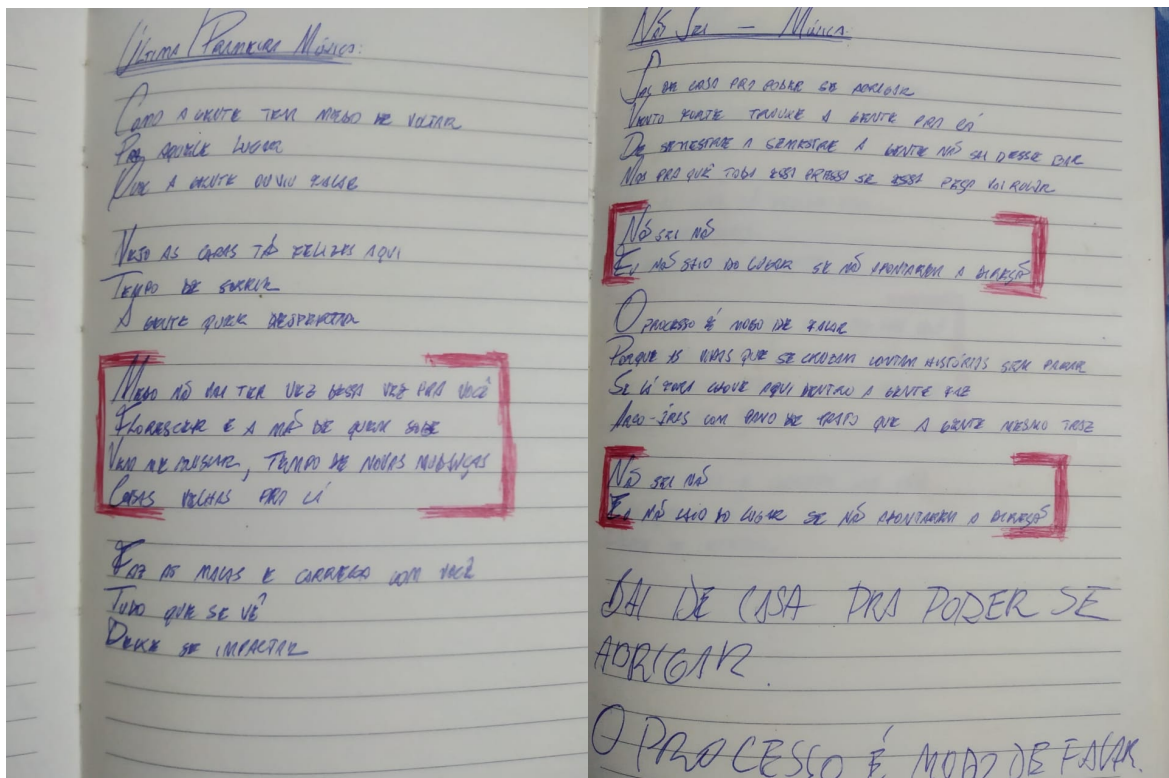 Última / Primeira Música:
Como a gente tem medo de voltar
Pra aquele lugar
Que a gente ouviu falar
Vejo as caras tã felizes aqui
Tempo de sorrir
A gente quer despertar
Medo nã vai ter vez dessa vez pra você
Florescer e a mã de quem sobe
Vem me buscar, tempo de novas mudanças
Caras velhas pra lá
Faz as malas e carrega com você
Tudo que se vê
Deixe se impactar
Nã Sei — Música:
Sai de casa pra poder se abrigar
Vento forte trouxe a gente pra cá
De semestre a semestre a gente nã sai desse bar
Mas pra quê toda essa pressa se essa peça vai rolar
Nã sei nã
Eu nã saio do lugar se nã apontarem a direçã
O processo é modo de falar
Porque as vidas que se cruzam contam histórias sem parar
Se lá fora chove aqui dentro a gente faz
Arco-íris com pano de prato que a gente mesmo traz
Nã sei nã
Eu nã saio do lugar se nã apontarem a direçã
SAI DE CASA PRA PODER SE
ABRIGAR.
O PROCESSO É MODO DE FALAR.